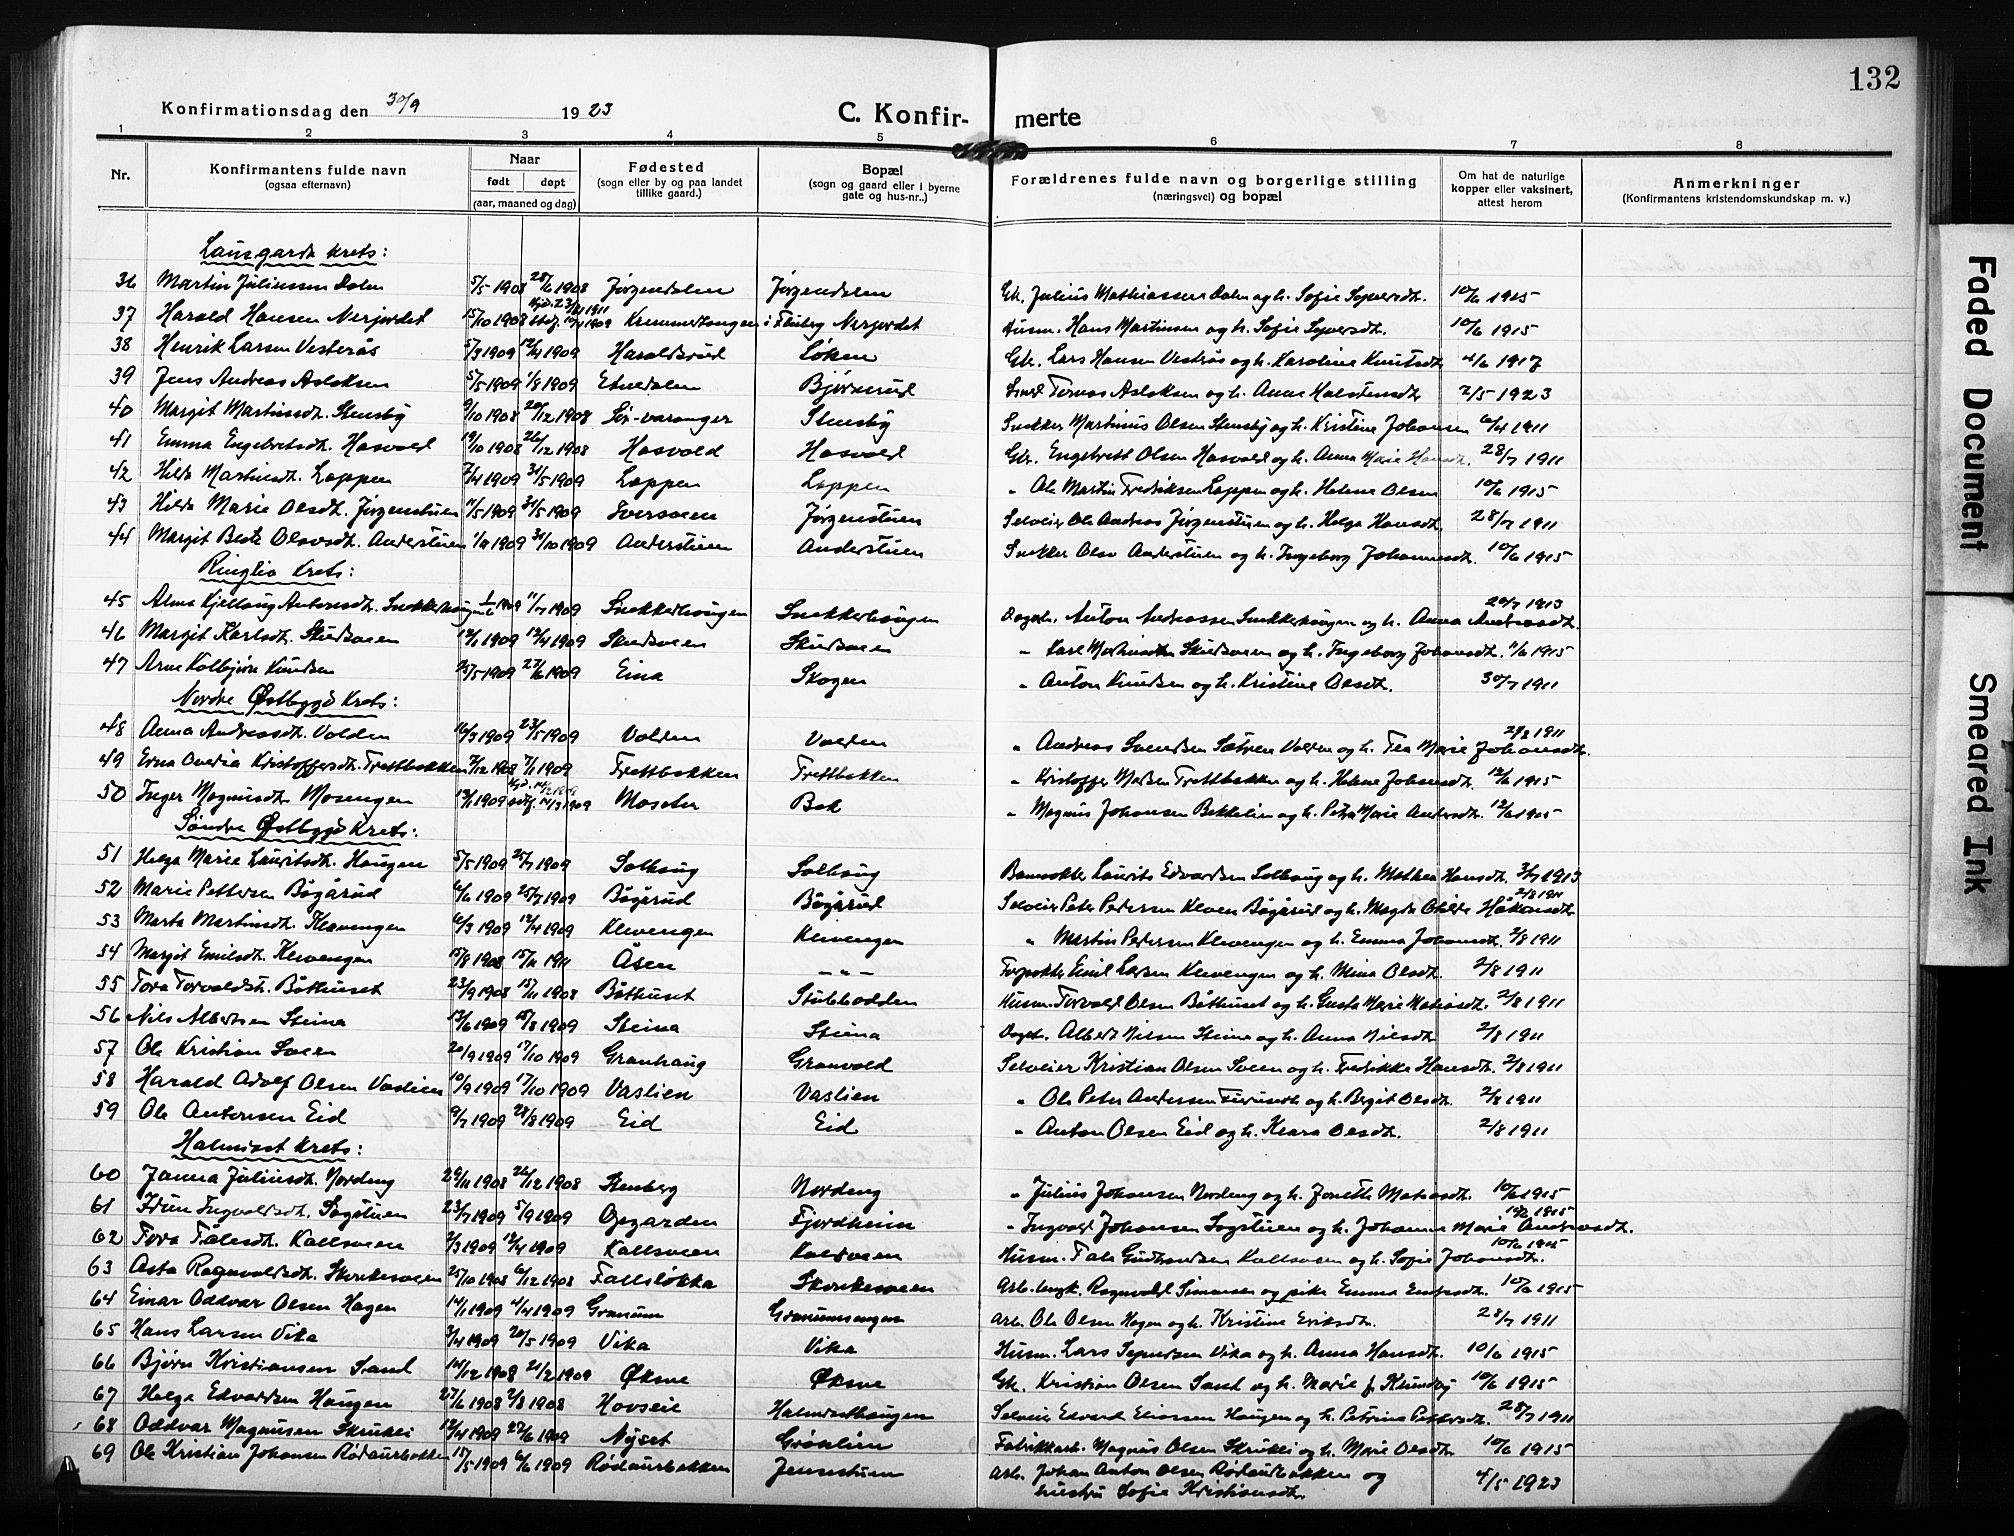 132
Konfirmationsdag den 30/9 1923 C. Konfir- merte
1 2 3 4 5 6 7 8
Nr. Konfirmantens fulde navn (ogsaa efternavn) Naar født døpt (aar, maaned og dag) Fødested (sogn eller by og paa landet tillike gaard.) Bopæl (sogn og gaard eller i byerne gate og hus-nr..) Forældrenes fulde navn og borgerlige stilling (næringsvei) og bopæl Om hat de naturlige kopper eller vaksinert, attest herom Anmerkninger (Konfirmantens kristendomskundskap m. v.)
Lausgarda Krets:
36 Martin Juliussen Dalen 5/5 1908 28/6 1908 Jørgendalen Jørgendalen Gbr. Julius Mathiassen Dalen og h. Sofie Syversdt. 10/6 1915
37 Harald Hansen Nerjordet 15/10 1908 Kremmertangen i Fluberg Nerjordet Husm. Hans Martinsen og h. Sofie Syversdt. 10/6 1915
38 Henrik Larsen Vesterås 5/3 1909 12/4 1909 Haraldsrud Løken Gbr. Lars Hansen Vestrås og h. Karoline Knutsdt. 4/6 1917
39 Jens Andreas Aslaksen 5/5 1909 1/8 1909 Etnedalen Bjørnerud Smed Tomas Aslaksen og h. Anne Halstensdt. 2/5 1923
40 Margit Martinsdt. Stensby 9/10 1908 20/12 1908 Sør-varanger Stensby Snekker Martinus Olsen Stensby og h. Kristine Johansen 6/4 1911
41 Emma Engebretsdt. Hasvold 19/10 1908 26/12 1908 Hasvold Hasvold Gbr. Engebrett Olsen Hasvold og h. Anna Marie Hansdt. 28/7 1911
42 Hilda Martinsdt. Lappen 7/4 1909 31/5 1909 Lappen Lappen " Ole Martin Fredriksen Lappen og h. Helene Olsen 10/6 1915
43 Hilda Marie Olsdt. Jørgenstuen 11/5 1909 31/5 1909 Sversveen Jørgenstuen Selveier Ole Andreas Jørgenstuen og h. Helga Hansdt. 28/7 1911
44 Margit Beate Olavsdt. Anderstuen 31/10 1909 Anderstuen Anderstuen Snekker Olav Anderstuen og h. Ingeborg Johannesdt. 10/6 1915
Ringlia Krets:
45 Alma Kjellaug Antonsdt. Snekkerhaugen 1/6 1909 11/7 1909 Snekkerhaugen Snekkerhaugen Dagarb. Anton Andreassen Snekkerhaugen og h. Anna Andreasdt. 20/7 1913
46 Margit Karlsdt. Skudsveen 12/1 1909 12/4 1909 Skudsveen Skudsveen " Karl Mathiassen Skudsveen og h. Ingeborg Johansdt. 11/6 1915
47 Arne Kolbjørn Knudsen 25/5 1909 27/6 1909 Eina Skogen " Anton Knudsen og h. Kristine Olsdt. 30/7 1911
Nordre Østbygds Krets:
48 Anna Andreasdt. Volden 16/3 1909 23/5 1909 Volden Volden " Andreas Svendsen Sætren Volden og h. Tea Marie Johansdt. 2/8 1911
49 Erna Ovedia Kristoffersdt. Trettbakken 7/12 1908 7/1 1909 Trettbakken Trettbakken " Kristoffer Madsen Trettbakken og h. Helene Johansdt. 12/6 1915
50 Inger Magnusdt. Mosengen 13/1 1909 14/3 1909 Moseter Bak " Magnus Johansen Bekkelien og h. Petra Marie Andersdt. 12/6 1915
Søndre Østbygds Krets:
51 Helga Marie Lauritsdt. Haugen 5/5 1909 25/7 1909 Solhaug Solhaug Banevokter Laurits Edvardsen Solhaug og h. Mathea Hansdt. 3/7 1913
52 Marie Pettersen Bøgårud 6/6 1909 25/7 1909 Bøgårud Bøgårud Selveier Peter Pedersen Kleven Bøgårud og h. Magda Otilde Håkensdt. 2/8 1911
53 Marta Martinsdt. Klevengen 6/3 1909 12/4 1909 Klevengen Klevengen " Martin Pedersen Klevengen og h. Emma Johansdt. 2/8 1911
54 Margit Emilsdt. Klevengen 15/8 1908 15/11 1911 Åsen - " - Emil Larsen Klevengen og h. Mina Olsdt. 2/8 1911
55 Tora Torvaldsdt. Båthuset 23/9 1908 15/11 1908 Båthuset Stubbodden Husm. Torvald Olsen Båthuset og h. Gusta Marie Matiasdt. 2/8 1911
56 Nils Albertsen Steina 13/6 1909 15/8 1909 Steina Steina Dagarb. Albert Nilsen Steina og h. Anna Nilsdt. 2/8 1911
57 Ole Kristian Sveen 20/9 1909 17/10 1909 Granhaug Granvold Selveier Kristian Olsen Sveen og h. Fredrikke Hansdt. 2/8 1911
58 Harald Adolf Olsen Vaslien 10/9 1909 17/10 1909 Vaslien Vaslien " Ole Peter Andersen Furuseth og h. Bergit Olsdt. 2/8 1911
59 Ole Antonsen Eid 9/7 1909 28/8 1909 Eid Eid " Anton Olsen Eid og h. Klara Olsdt. 2/8 1911
Halmrast Krets:
60 Janna Juliusdt. Nordeng 29/11 1908 26/12 1908 Stenberg Nordeng " Julius Johansen Nordeng og h. Jonette Matiasdt. 10/6 1915
61 Idun Ingvaldsdt. Sagstuen 23/7 1909 5/9 1909 Opgarden Fjordheim " Ingvald Johansen Sagstuen og h. Johanne Marie Andreasdt. 10/6 1915
62 Tora Talesdt. Kallsveen 2/3 1909 12/4 1909 Kallsveen Kalsveen Husm. Tale Gudbrandsen Kallsveen og h. Sofie Johansdt. 10/6 1915
63 Asta Ragnvaldsdt. Skonkesveen 25/10 1908 6/12 1908 Fallsløkka Skonkesveen Ragnvald Simensen og pike Emma Enevsdt. 10/6 1915
64 Einar Oddvar Olsen Hagen 14/1 1909 4/4 1909 Granum Granumsengen Arb. Ole Olsen Hagen og h. Kristine Eriksdt. 28/7 1911
65 Hans Larsen Vika 3/4 1909 20/5 1909 Vika Vika Husm. Lars Syversen Vika og h. Anna Hansdt. 10/6 1915
66 Bjørn Kristiansen Sand 14/12 1908 21/2 1909 Øksne Øksne Gbr. Kristian Olsen Sand og h. Marie f. Klundby 10/6 1915
67 Helge Edvardsen Haugen 27/6 1908 2/8 1908 Hovseie Halmrasthaugen Selveier Edvard Eliassen Haugen og h. Petrine Pettersdt. 28/7 1911
68 Oddvar Magnussen Skrukli 12/4 1909 27/6 1909 Nyset Grønlien Fabrikkarb. Magnus Olsen Skrukli og h. Marie Olsdt. 10/6 1915
69 Ole Kristian Johansen Rødaurbakken 15/5 1909 6/6 1909 Rødaurbakken Jensestuen Arb. Johan Anton Olsen Rødaurbakken og
hustru Sofie Kristiansdt. 4/5 1923
Faded Document
Smeared Ink